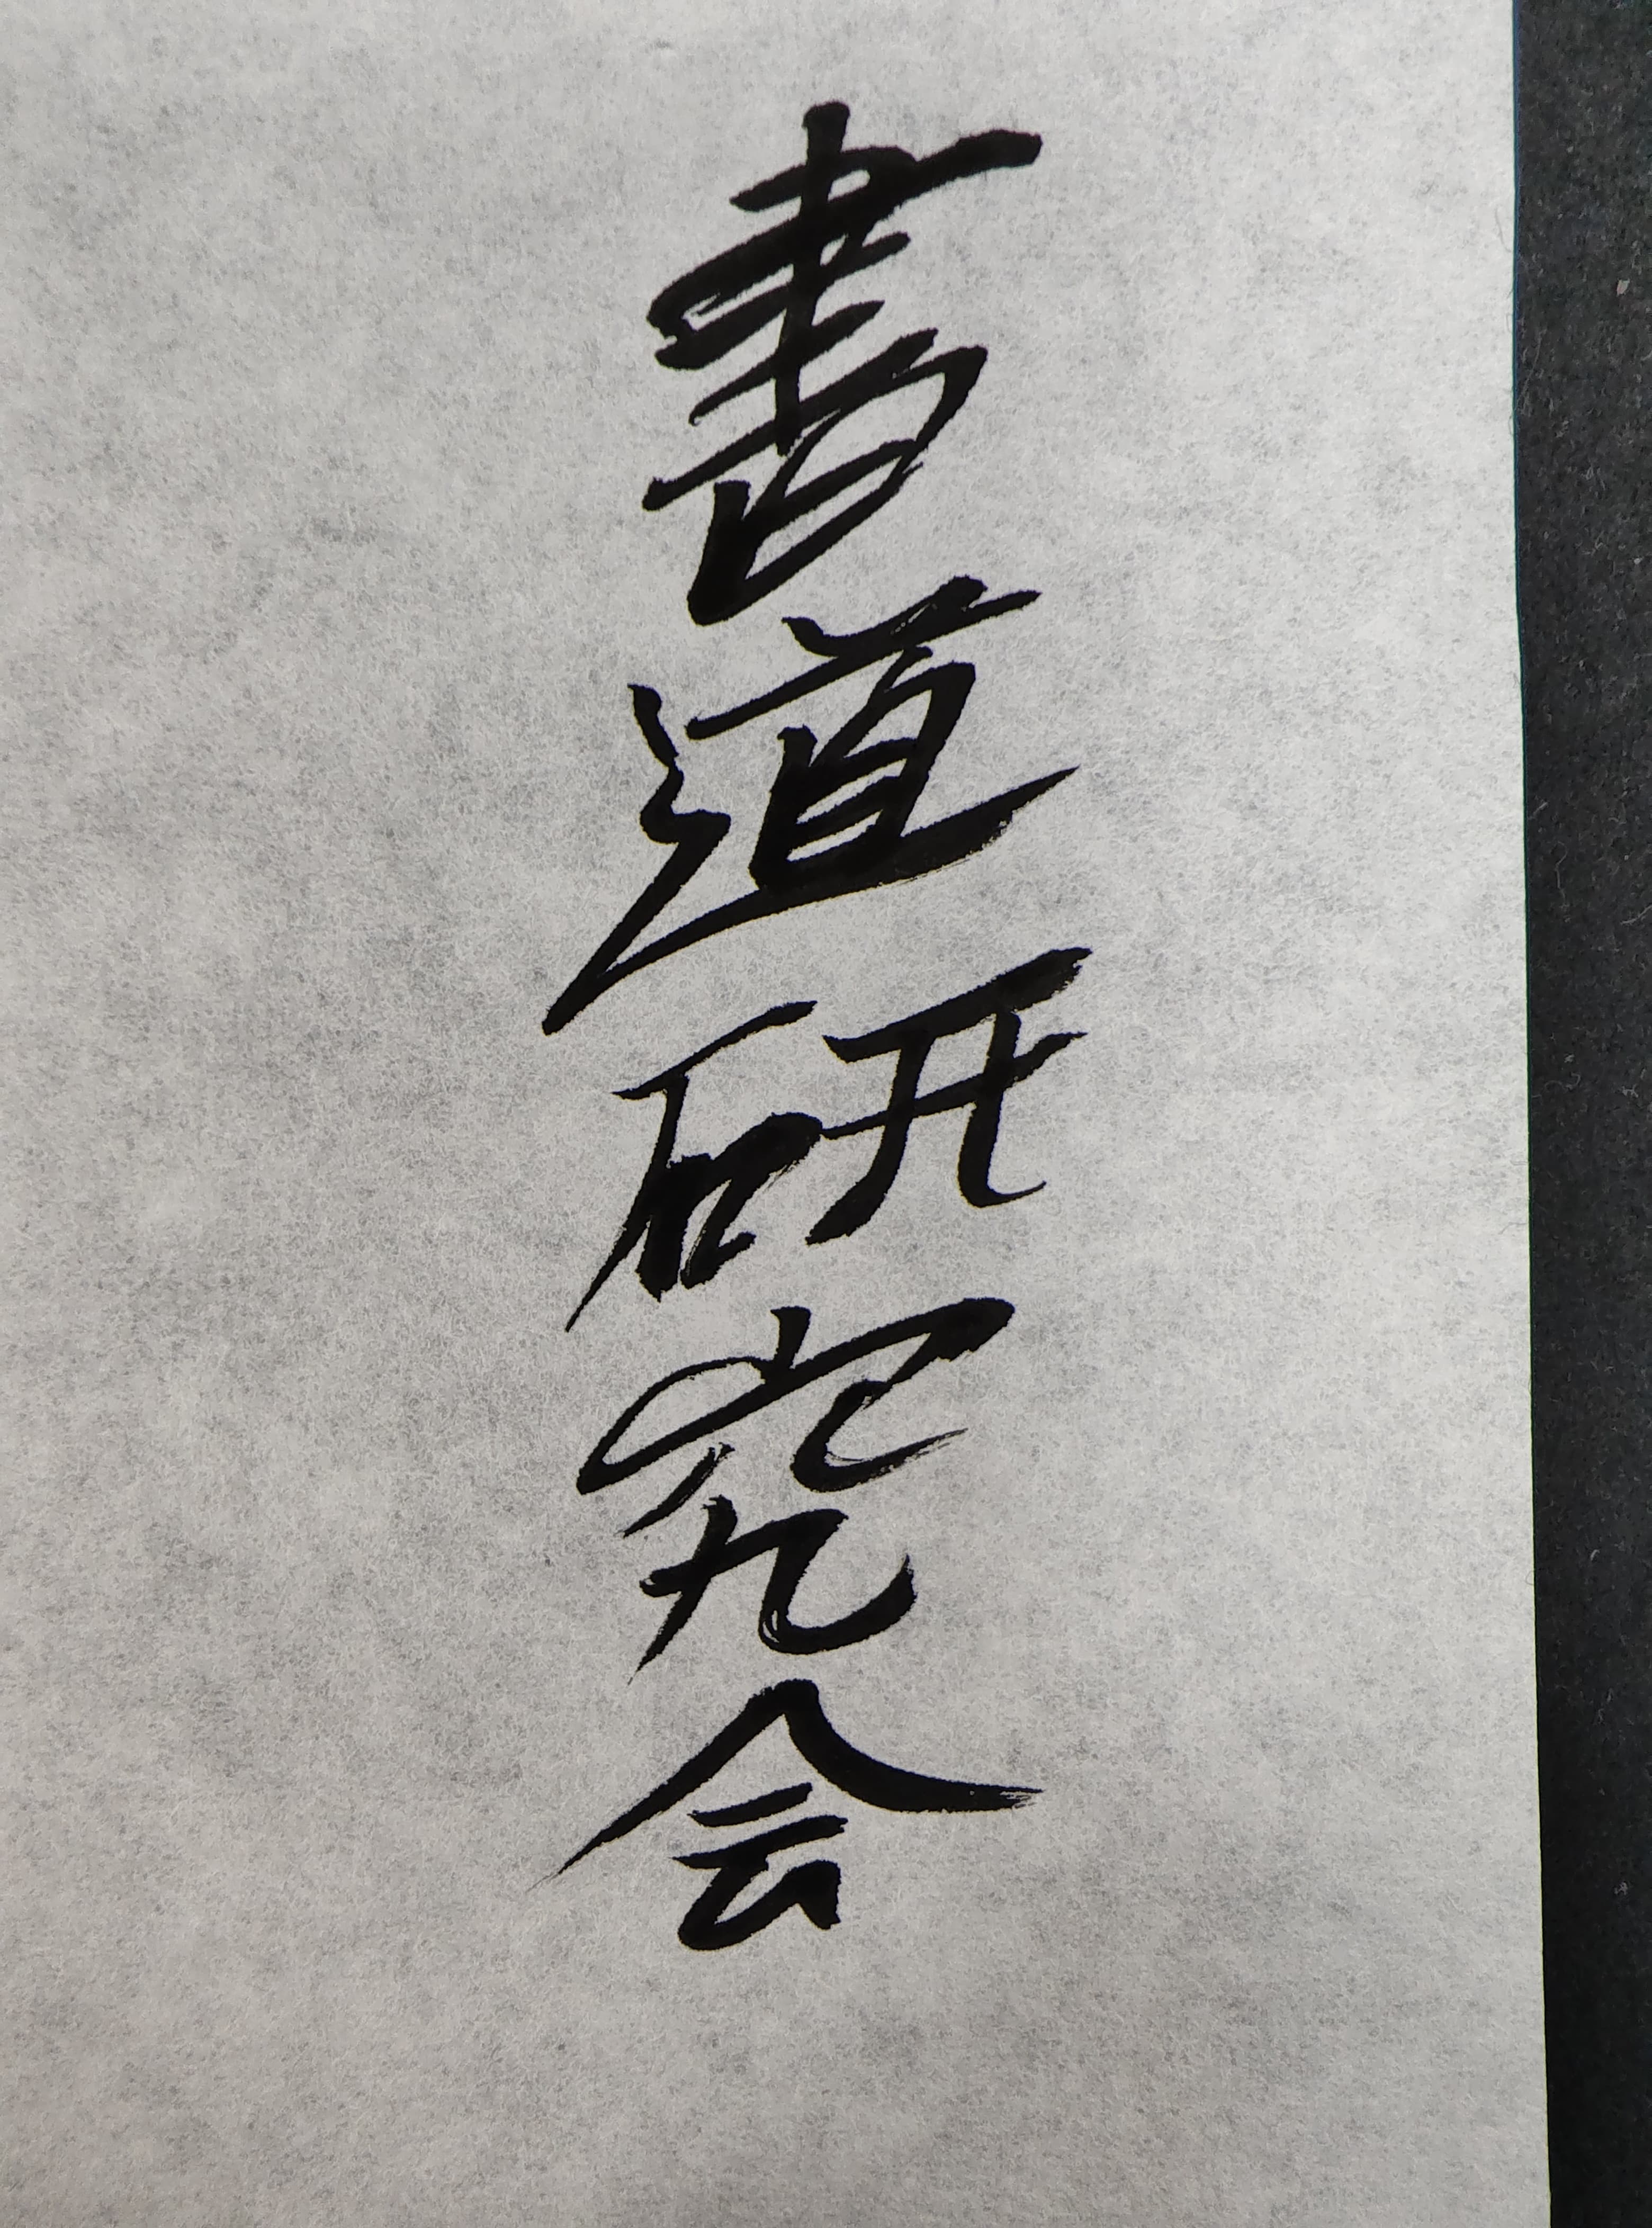 書道研究会